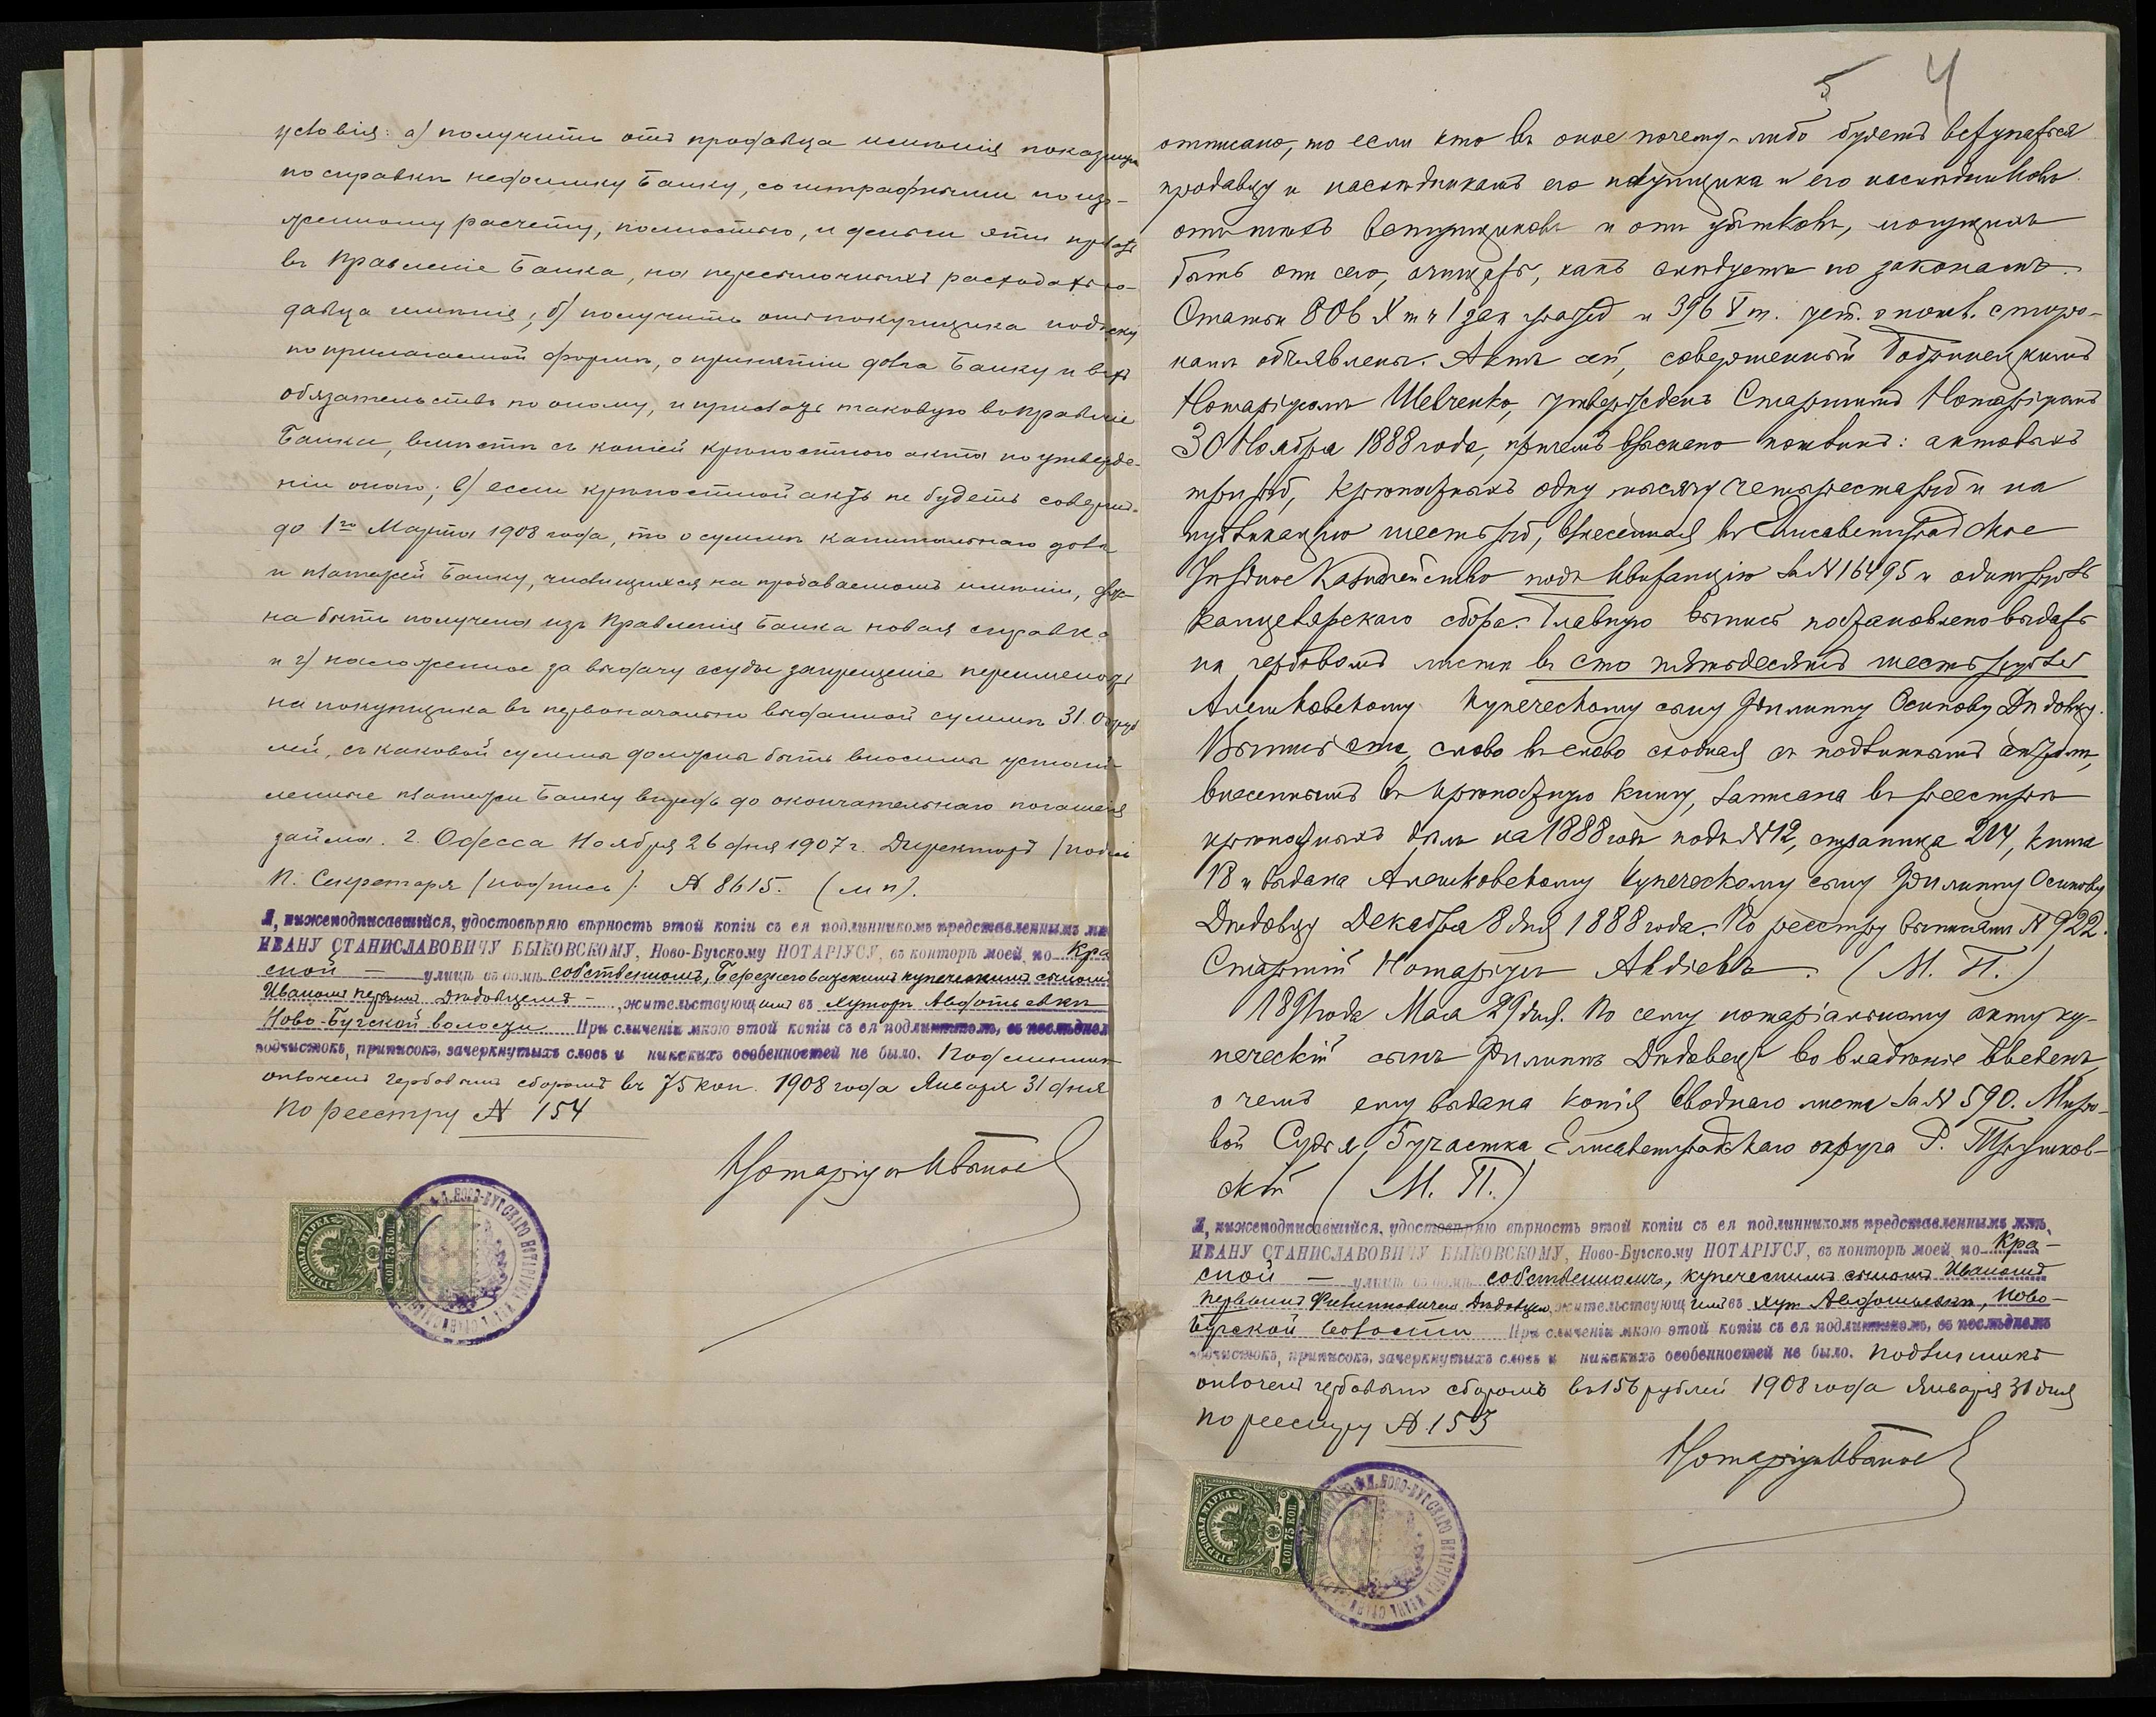 условія: а) получить отъ продавца имѣнія показанную
по справкѣ недоимку Банку, со штрафными по изло-
женному расчету, полностью, и деньги эти прислать
въ Правленіе Банка, на пересылочныхъ расходахъ про-
давца имѣнія; б) получить отъ покупщика подписку
по прилагаемой формѣ, о принятіи долга Банку и всѣхъ
обязательствъ по оному, и прислать таковую въ Правленіе
Банка, вмѣстѣ съ копіей крѣпостного акта по утвержде-
ніи онаго; в) если крѣпостной актъ не будетъ совершенъ
до 1го Марта 1908 года, то о суммѣ капитальнаго долга
и платежей Банку, числящихся на продаваемомъ имѣніи, долж-
на быть получена изъ Правленія Банка новая справка
и г) наложенное за выдачу ссуды запрещеніе переименовать
на покупщика въ первоначально выданной суммѣ 31.
лей, съ каковой суммы должны быть вносимы установ-
ленные платежи Банку впредь до окончательнаго погашенія
займа. г. Одесса Ноября 26 дня 1907 г. Директоръ (подпись
П. Секретаря (подпись). № 8615. (м п).
Я, нижеподписавшійся, удостовѣряю вѣрность этой копіи съ ея подлинникомъ представленнымъ мнѣ
ИВАНУ СТАНИСЛАВОВИЧУ БЫКОВСКОМУ, Ново-Бугскому НОТАРІУСУ, въ конторѣ моей, по Кра
сной — улицѣ въ домѣ собственномъ, Березнеговатскимъ купеческимъ сыномъ
Иваномъ первымъ Дѣдовцемъ —, жительствующимъ въ хуторѣ Авдотьевкѣ
Ново-Бугской волости При сличеніи мною этой копіи съ ея подлинникомъ, въ послѣднемъ
подчистокъ, приписокъ, зачеркнутыхъ словъ и никакихъ особенностей не было. Подлинникъ
оплоченъ гербовымъ сборомъ въ 75 коп. 1908 года Января 31 дня
По реестру № 154
Нотаріусъ
ГЕРБОВАЯ МАРКА
КОП 75 КОП
отписано, то если кто въ оное почему-либо будетъ вступаться
продавцу и наслѣдникамъ его покупщика и его наслѣдниковъ
отъ тѣхъ вступщиковъ и отъ убытковъ, могущихъ
быть отъ сего, очищать, какъ слѣдуетъ по законамъ.
Статьи 806 X т ч 1 зак гражд и 396 V т. уст. о пошл. сторо-
намъ объявлены. Актъ сей, совершенный Бобринецкимъ
Нотаріусомъ Шевченко, утвержденъ Старшимъ Нотаріусомъ
30 Ноября 1888 года, причемъ взыскано пошлинъ: актовыхъ
три руб, крѣпостныхъ одну тысячу четыреста руб и на
публикацію шесть руб, внесенная въ Елисаветградское
Уѣздное Казначейство подъ квитанцію за № 16495 и одинъ рубль
канцелярскаго сбора. Главную выпись постановлено выдать
на гербовомъ листѣ въ сто пятьдесятъ шесть рублей
Алешковскому купеческому сыну Филиппу Осипову Дѣдовцу.
Выпись эта, слово въ слово сходная съ подлиннымъ актомъ,
внесеннымъ въ крѣпостную книгу, записана въ реестръ
крѣпостныхъ дѣлъ на 1888 годъ подъ № 12, страница 214, книга
18 и выдана Алешковскому купеческому сыну Филиппу Осипову
Дѣдовцу Декабря 8 дня 1888 года. По реестру выписямъ № 922.
Старшій Нотаріусъ Авдіевъ. (М. П.)
1891 года Мая 29 дня. По сему нотаріальному акту ку-
печескій сынъ Филиппъ Дѣдовецъ во владѣніе введенъ,
о чемъ ему выдана копія вводнаго листа за № 590. Миро-
вой Судья 5 участка Елисаветградскаго округа Р. Трушков-
скій (М. П.)
Я, нижеподписавшійся, удостовѣряю вѣрность этой копіи съ ея подлинникомъ представленнымъ мнѣ,
ИВАНУ СТАНИСЛАВОВИЧУ БЫКОВСКОМУ, Ново-Бугскому НОТАРІУСУ, въ конторѣ моей, по Кра-
сной — улицѣ въ домѣ собственномъ, купеческимъ сыномъ Иваномъ
первымъ Филипповичемъ Дѣдовцемъ, жительствующимъ въ хут Авдотьевкѣ, Ново-
Бугской волости При сличеніи мною этой копіи съ ея подлинникомъ, въ послѣднемъ
подчистокъ, приписокъ, зачеркнутыхъ словъ и никакихъ особенностей не было. Подлинникъ
оплоченъ гербовымъ сборомъ въ 156 рублей 1908 года Января 31 дня
по реестру № 153
Нотаріусъ
ГЕРБОВАЯ МАРКА
КОП 75 КОП
5 4